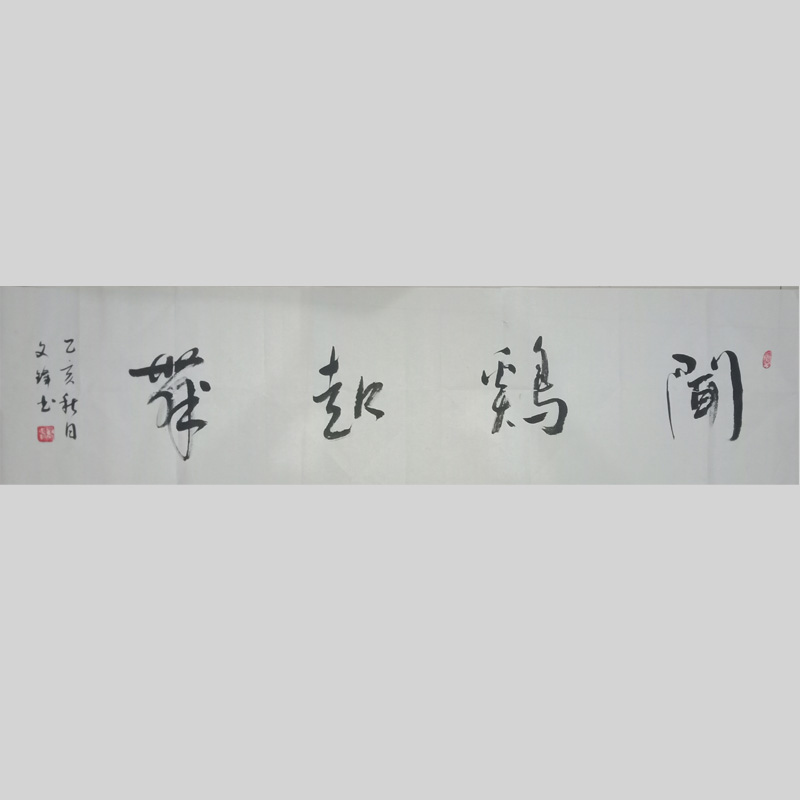 聞鷄起舞
乙亥秋日
文鋒書